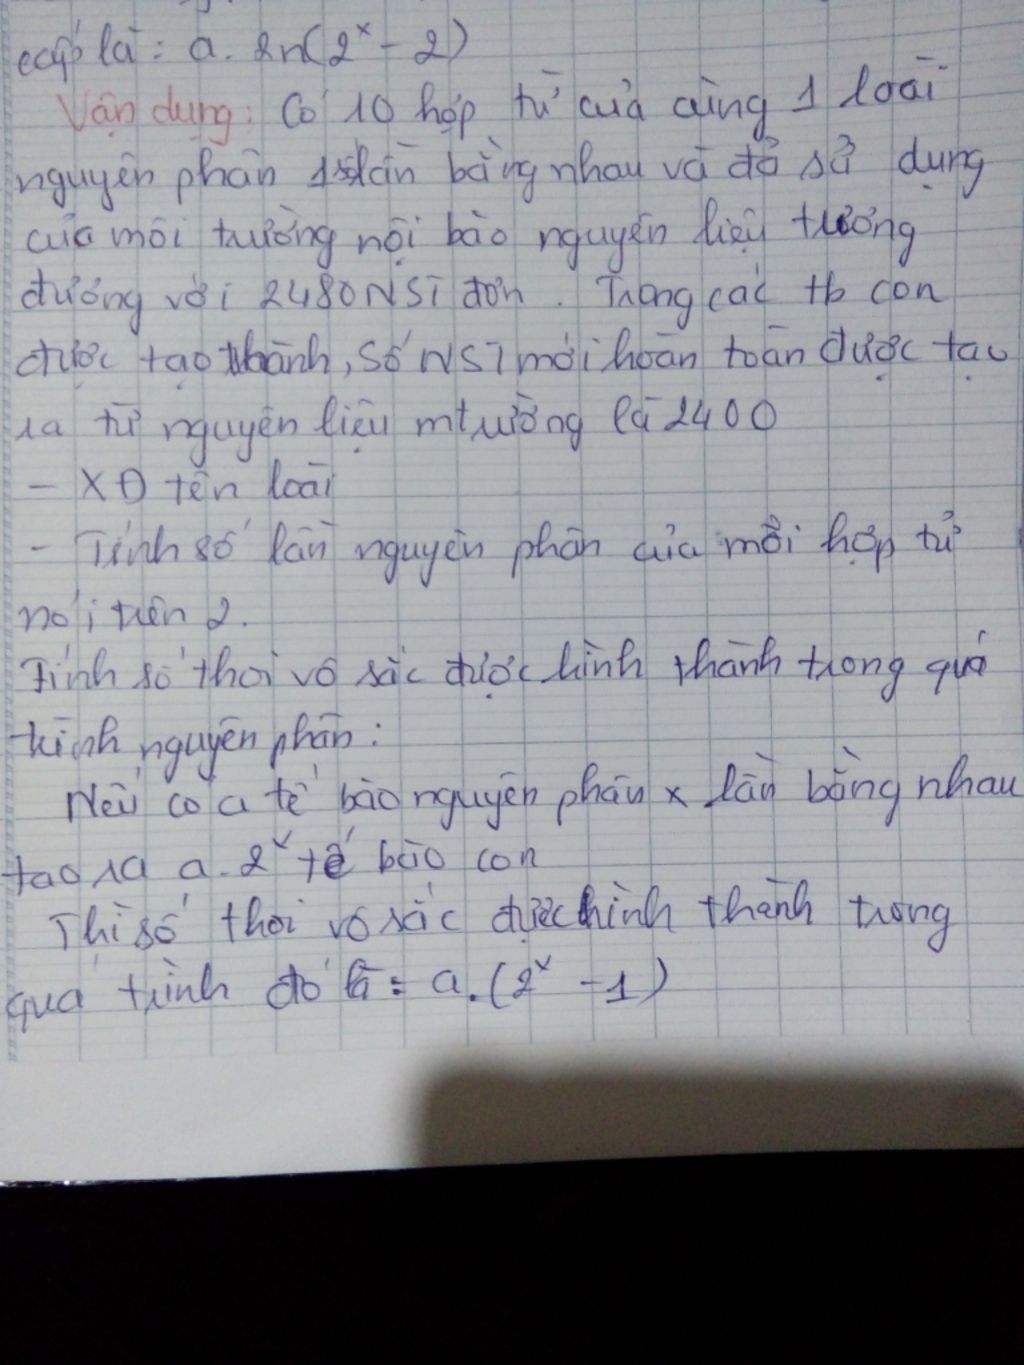 cấp là: a. 2n(2ˣ - 2)
Vận dụng: Có 10 hợp tử của cùng 1 loài
nguyên phân 1 số lần bằng nhau và đã sử dụng
của môi trường nội bào nguyên liệu tương
đương với 2480 NST đơn. Trong các tb con
được tạo thành, số NST mới hoàn toàn được tạo
ra từ nguyên liệu mtrường là 2400
- XĐ tên loài
- Tính số lần nguyên phân của mỗi hợp tử
nói trên 2.
Tính số thoi vô sắc được hình thành trong quá
trình nguyên phân:
Nếu có a tế bào nguyên phân x lần bằng nhau
tạo ra a. 2ˣ tế bào con
Thì số thoi vô sắc được hình thành trong
quá trình đó là = a.(2ˣ - 1)